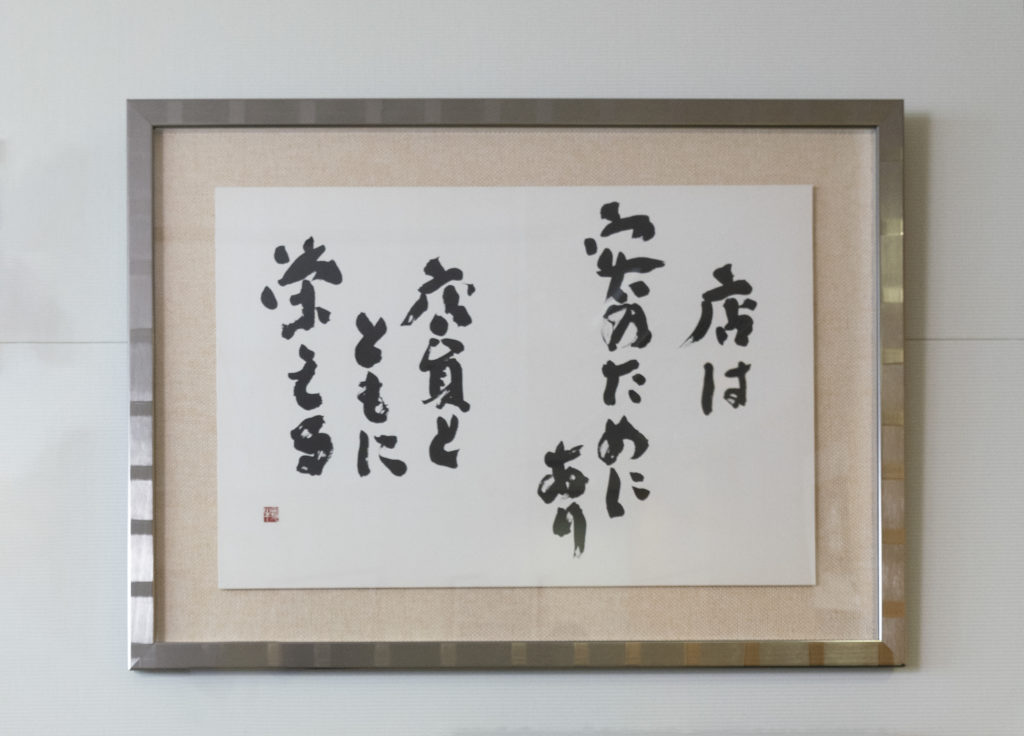 店は
客のために
あり
店員と
ともに
栄える